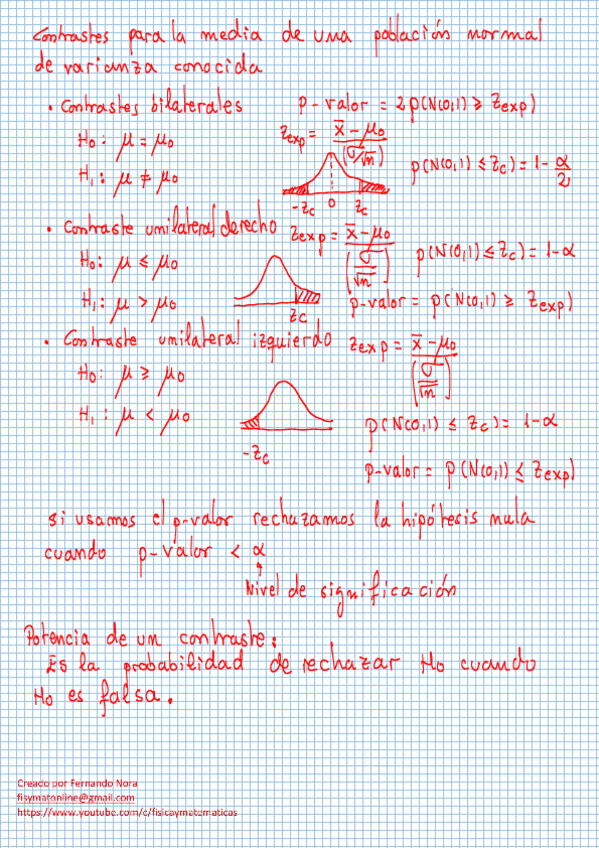 Contrastes para la media de una población normal
de varianza conocida
• Contrastes bilaterales p-valor = 2P(N(0,1) ≥ Zexp)
H0: μ = μ0 Zexp = (x̄ - μ0)/(σ/√n)
H1: μ ≠ μ0 P(N(0,1) ≤ Zc) = 1 - α/2
-Zc 0 Zc
• Contraste unilateral derecho Zexp = (x̄ - μ0)/(σ/√n)
H0: μ ≤ μ0 P(N(0,1) ≤ Zc) = 1-α
H1: μ > μ0 p-valor = P(N(0,1) ≥ Zexp)
Zc
• Contraste unilateral izquierdo Zexp = (x̄ - μ0)/(σ/√n)
H0: μ ≥ μ0
H1: μ < μ0 P(N(0,1) ≤ Zc) = 1-α
-Zc
p-valor = P(N(0,1) ≤ Zexp)
Si usamos el p-valor rechazamos la hipótesis nula
cuando p-valor < α
Nivel de significación
Potencia de un contraste:
Es la probabilidad de rechazar H0 cuando
H0 es falsa.
Creado por Fernando Nora
fisymatonline@gmail.com
https://www.youtube.com/c/fisicaymatematicas